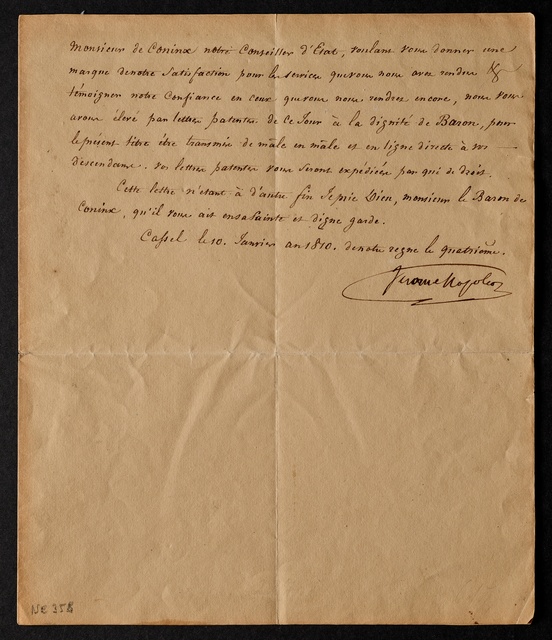 Monsieur de Coninx notre Conseiller d'Etat, voulant vous donner une
marque de notre Satisfaction pour les services que vous nous avez rendus &
témoigner notre Confiance en ceux que vous nous rendrez encore, nous vous
avons élevé par lettres patentes de ce Jour à la dignité de Baron, pour
le présent titre être transmis de mâle en mâle et en ligne directe à vos
descendans. vos lettres patentes vous seront expédiées par qui de droit.
Cette lettre n'etant à d'autre fin Je prie Dieu, monsieur le Baron de
Coninx, qu'il vous ait en sa Sainte et digne garde.
Cassel le 10. Janvier an 1810. de notre regne le quatrième.
Jerome Napoleon
NE 358